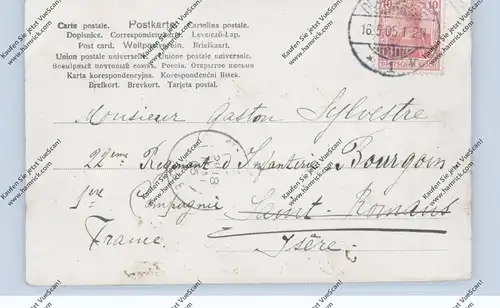 Carte postale. Postkarte. Cartolina postale.
Dopisnice. Correspondenzkarte. Levelező-Lap.
Post card. Weltpostverein. Briefkaart.
Union postale universelle. Unione postale universale.
Всемірный почтовый союзъ. Россія. Открытое письмо
Karta korespondencyjna. Korespondenční lístek.
Brefkort. Brevkort. Tarjeta postal.
16.5.05.
10 10
Monsieur Gaston Sylvestre
22ème Regiment d'Infanterie Bourgoin
1ère Compagnie Saint-Romans
France Isère
Kaufen Sie jetzt VueScan!
www.hamrick.com